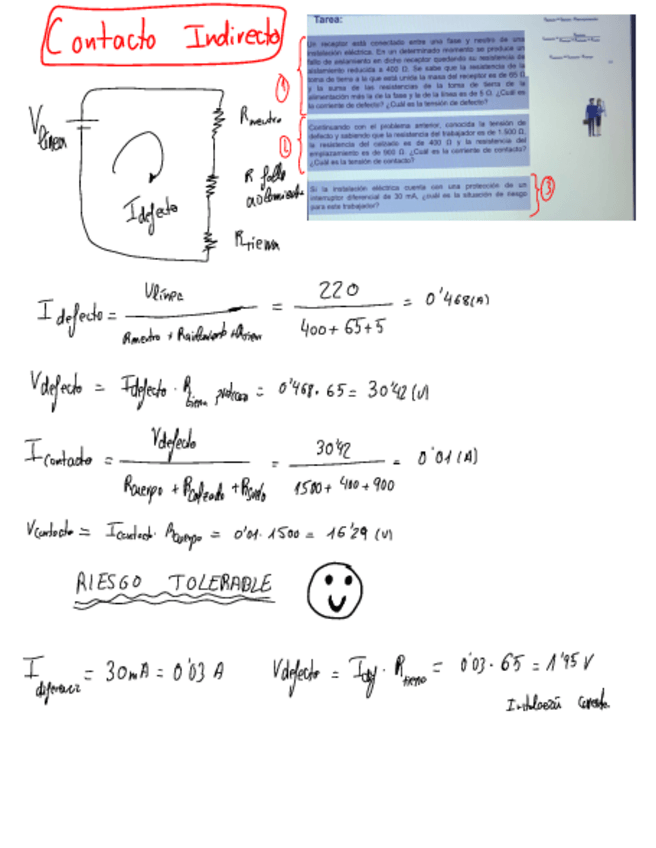 Contacto Indirecto
Tarea:
Un receptor está conectado entre una fase y neutro de una
instalación eléctrica. En un determinado momento se produce un
fallo de aislamiento en dicho receptor quedando su resistencia de
aislamiento reducida a 400 Ω. Se sabe que la resistencia de la
toma de tierra a la que está unida la masa del receptor es de 65 Ω
y la suma de las resistencias de la toma de tierra de la
alimentación más la de la fase y la de la línea es de 5 Ω. ¿Cuál es
la corriente de defecto? ¿Cuál es la tensión de defecto?
①
Continuando con el problema anterior, conocida la tensión de
defecto y sabiendo que la resistencia del trabajador es de 1.500 Ω,
la resistencia del calzado es de 400 Ω y la resistencia del
emplazamiento es de 900 Ω. ¿Cuál es la corriente de contacto?
¿Cuál es la tensión de contacto?
②
Si la instalación eléctrica cuenta con una protección de un
interruptor diferencial de 30 mA, ¿cuál es la situación de riesgo
para este trabajador?
③
Vlínea
Idefecto
Rneutro
R fallo
aislamiento
Rtierra
Idefecto = Vlínea / Rneutro + Raislamiento + Rtierra = 220 / 400 + 65 + 5 = 0'468 (A)
Vdefecto = Idefecto · Rtierra = 0'468 · 65 = 30'42 (V)
Icontacto = Vdefecto / Rcuerpo + Rcalzado + Rsuelo = 30'42 / 1500 + 400 + 900 = 0'01 (A)
Vcontacto = Icontact · Rcuerpo = 0'01 · 1500 = 16'29 (V)
RIESGO TOLERABLE
I diferencia = 30mA = 0'03 A Vdefecto = Idif · Rtierra = 0'03 · 65 = 1'95 V